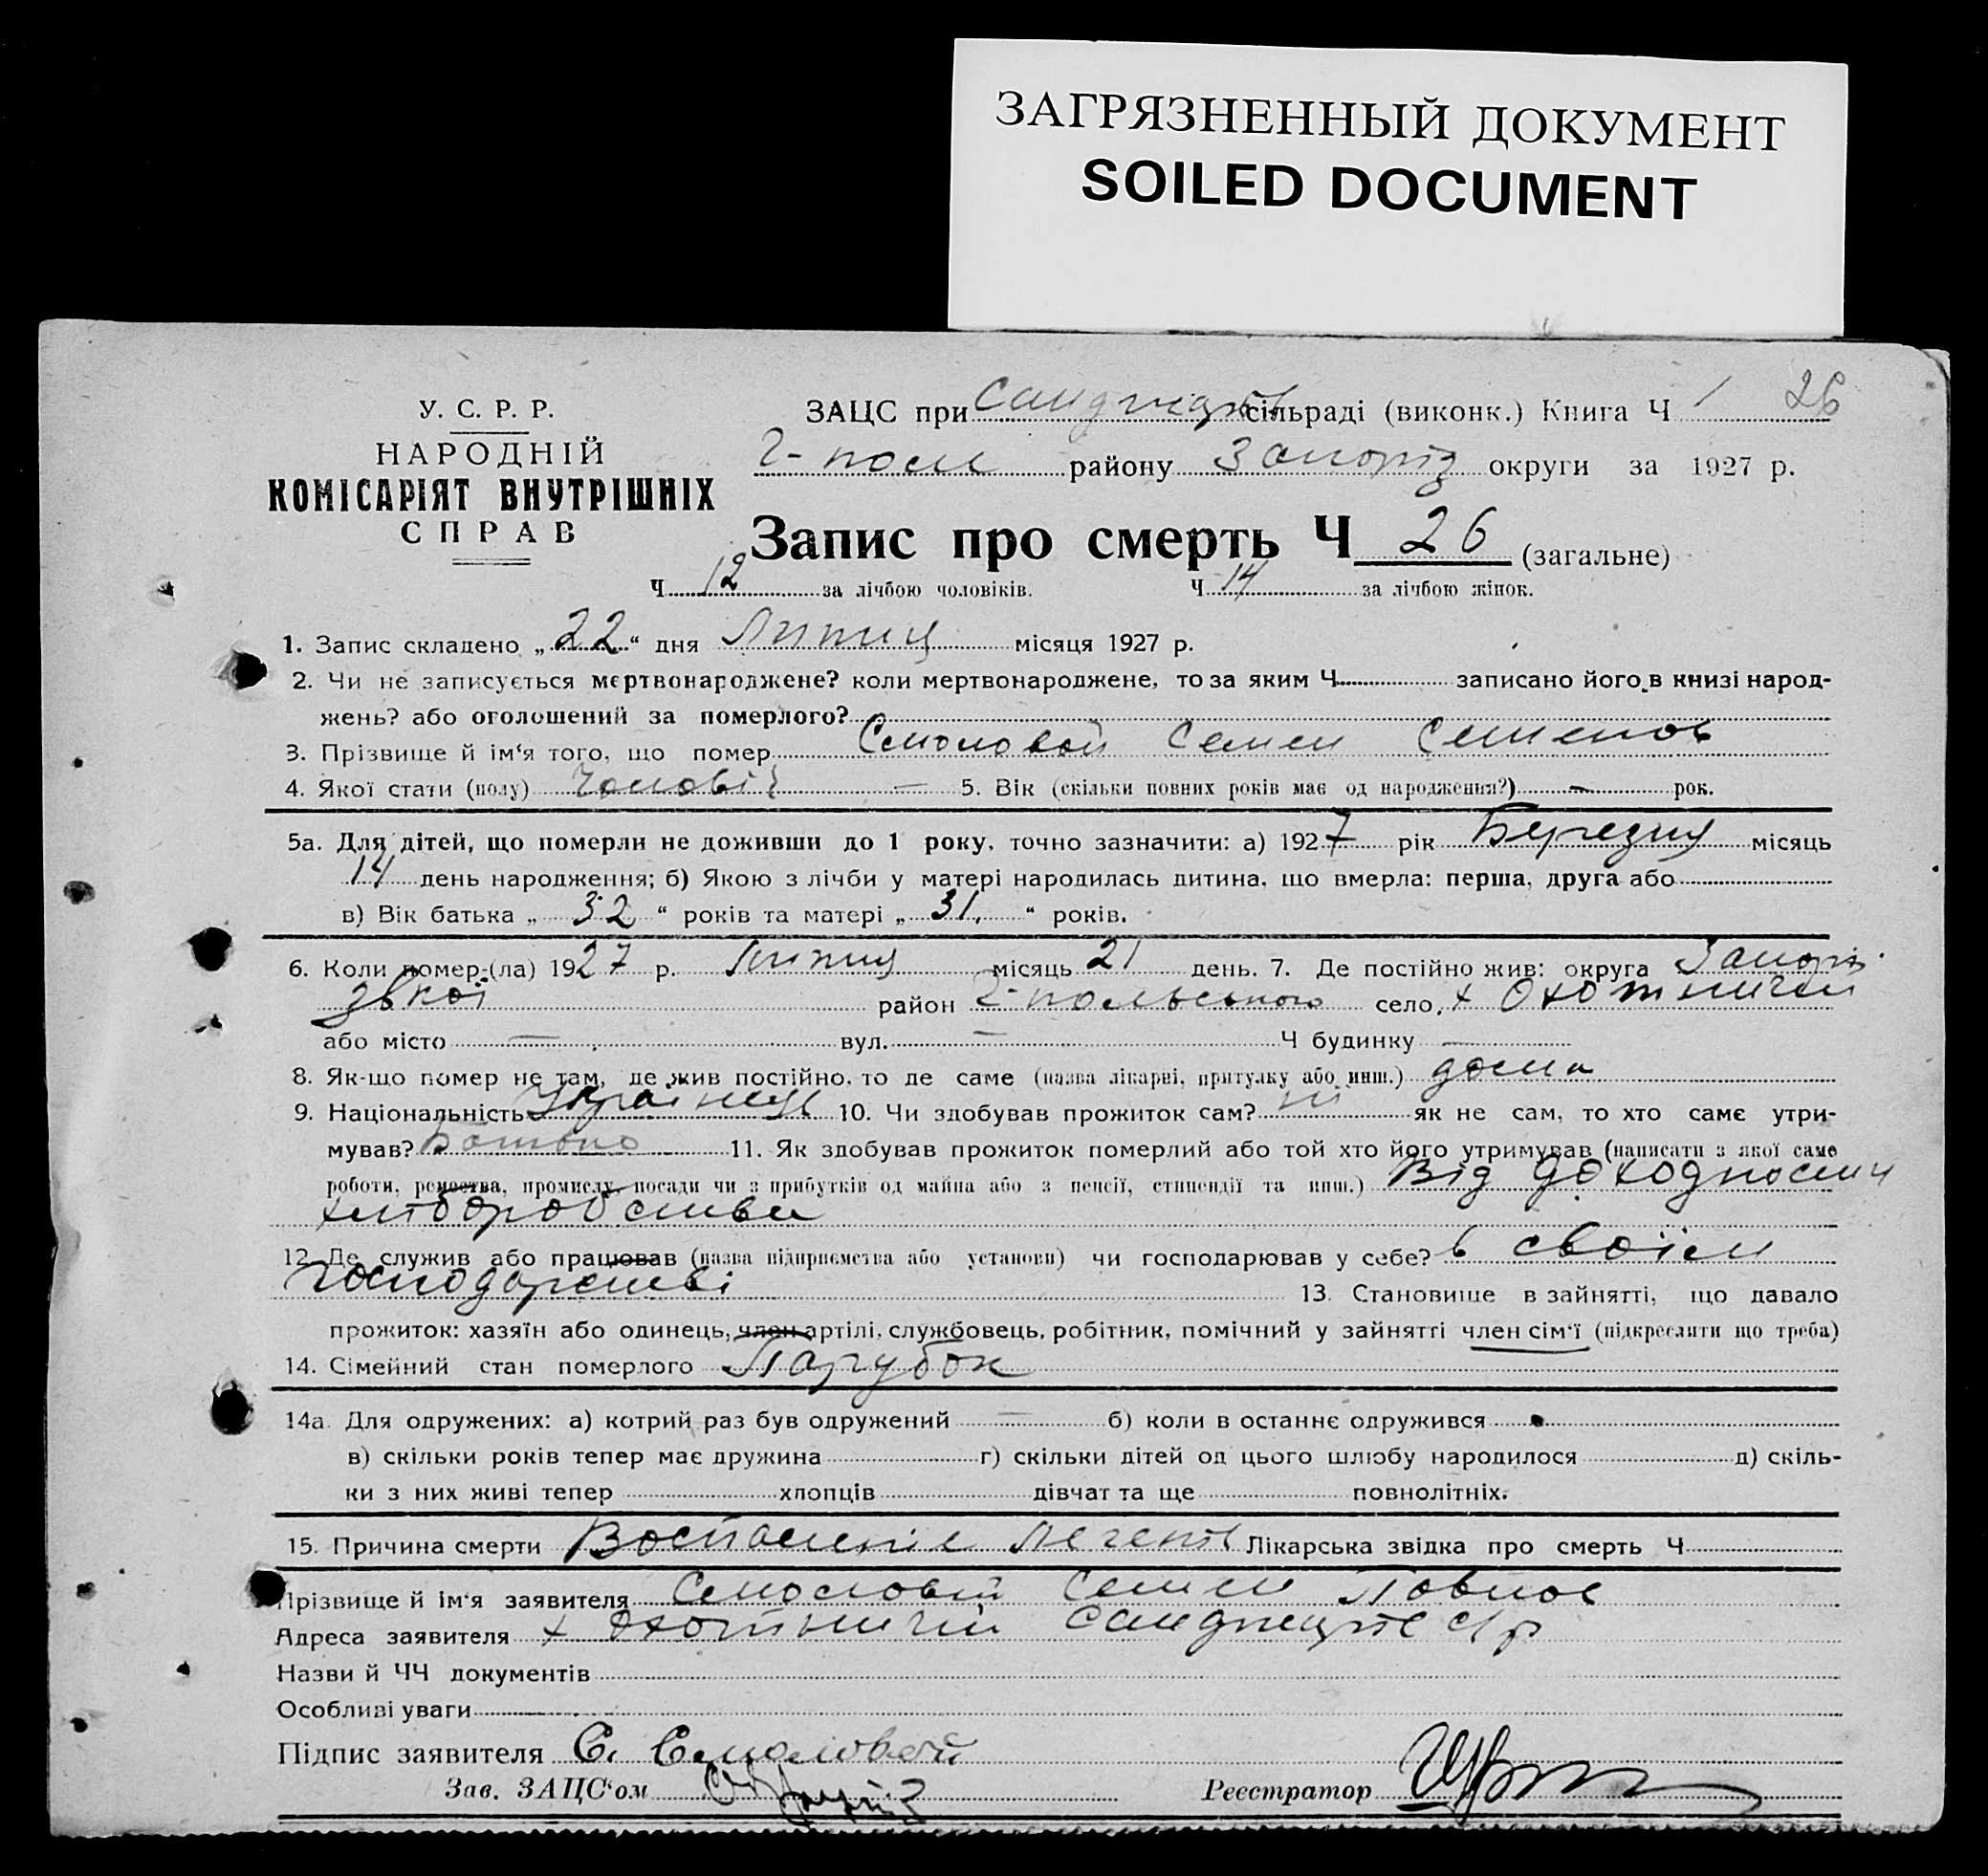 ЗАГРЯЗНЕННЫЙ ДОКУМЕНТ
SOILED DOCUMENT
У. С. Р. Р.
НАРОДНІЙ
КОМІСАРІЯТ ВНУТРІШНІХ
СПРАВ
ЗАЦС при сільраді (виконк.) Книга Ч 1 26
Г-пол району Запоріз округи за 1927 р.
Запис про смерть Ч 26 (загальне)
Ч 12 за лічбою чоловіків. Ч 14 за лічбою жінок.
1. Запис складено „22“ дня Липня місяця 1927 р.
2. Чи не записується мертвонароджене? коли мертвонароджене, то за яким Ч записано його в книзі народ-
жень? або оголошений за померлого?
3. Прізвище й ім‘я того, що помер Столовой Семен Семенов
4. Якої стати (полу) Чолові 5. Вік (скільки повних років має од народження?) — рок.
5а. Для дітей, що померли не доживши до 1 року, точно зазначити: а) 1927 рік Березня місяць
14 день народження; б) Якою з лічби у матері народилась дитина, що вмерла: перша, друга або
в) Вік батька „32“ років та матері „31.“ років.
6. Коли помер-(ла) 1927 р. Липня місяць 21 день. 7. Де постійно жив: округа Запорі-
звкої район Г-польського село, х Охотничий
або місто — вул. — Ч будинку —
8. Як-що помер не там, де жив постійно, то де саме (назва лікарні, притулку або инш.) дома
9. Національність Українець 10. Чи здобував прожиток сам? ні як не сам, то хто саме утри-
мував? Батько 11. Як здобував прожиток померлий або той хто його утримував (написати з якої саме
роботи, ремества, промислу, посади чи з прибутків од майна або з пенсії, стипендії та инш.) Від доходности
хліборобства
12. Де служив або працював (назва підприємства або установи) чи господарював у себе? в своїм
господарстві 13. Становище в зайнятті, що давало
прожиток: хазяїн або одинець, член артілі, службовець, робітник, помічний у зайнятті член сім‘ї (підкреслити що треба)
14. Сімейний стан померлого Парубок
14а. Для одружених: а) котрий раз був одружений — б) коли в останнє одружився
в) скільки років тепер має дружина г) скільки дітей од цього шлюбу народилося д) скіль-
ки з них живі тепер хлопців дівчат та ще повнолітніх.
15. Причина смерти Воспаление Легких Лікарська звідка про смерть Ч
Прізвище й ім‘я заявителя Столовой Семен Павлов
Адреса заявителя х Охотничий с/р
Назви й ЧЧ документів
Особливі уваги
Підпис заявителя С. Столовой
Зав. ЗАЦС‘ом Реєстратор